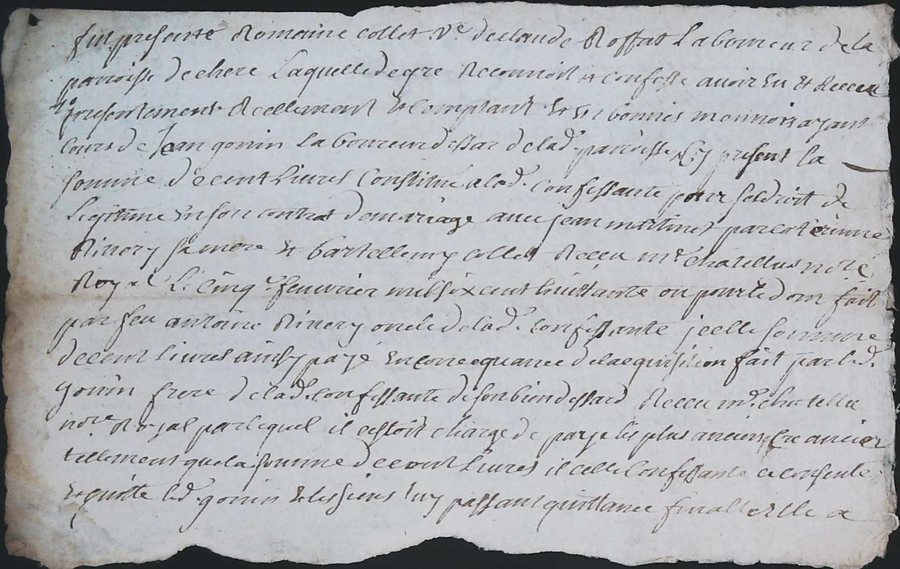 fut presente Romaine collet Ve. declaude Roffat Laboureur de la
paroisse de chere Laquelle de gre Reconnoit et confesse avoir eu et Receu
presentement Reellement et comptant en bonnes monnois ayant
cours de Jean gonin Laboureur dessar de lad. paroisse cy present la
somme de cent Livres Constitué a lad. confessante pour sol droit de
Legitime en son contrat de mariage avec jean martinet par
Rinery sa mere et bartellemy collet Receu me. chatellus notre
Royal Le Cinq feuvrier mil six cent huittante ou pour le don fait
par feu antoine Rinery oncle de lad. Confessante jcelle somme
de cent Livres ainsy payé en consequance de lacquisition fait par led.
gonin frere de lad. confessante de son bien dessard Receu me. chatellu
notre. Royal par lequel il estoit chargé de paye les plus anciens
tellement que la somme de cent Livres icelle Confessante ce contente
et quitte led. gonin et les siens luy passant quittance finalle elle a